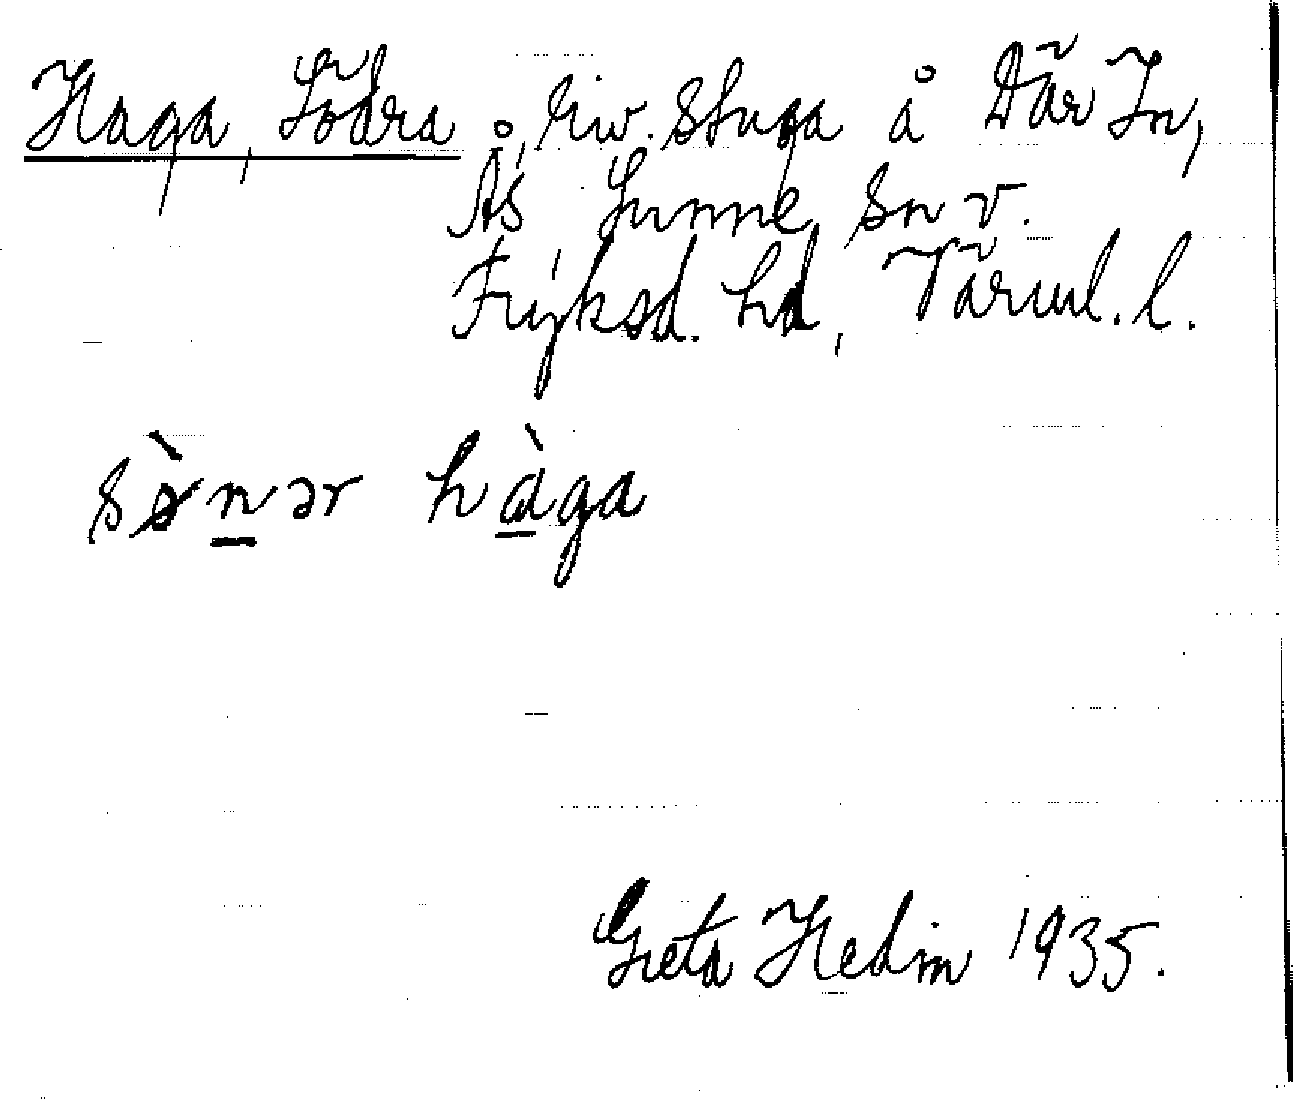 Haga, Södra, riv. stuga å Där In,
Ås Sunne sn v.
Fryksd. hd, Värml. l.
sø̀nər hàga
Greta Hedin 1935.